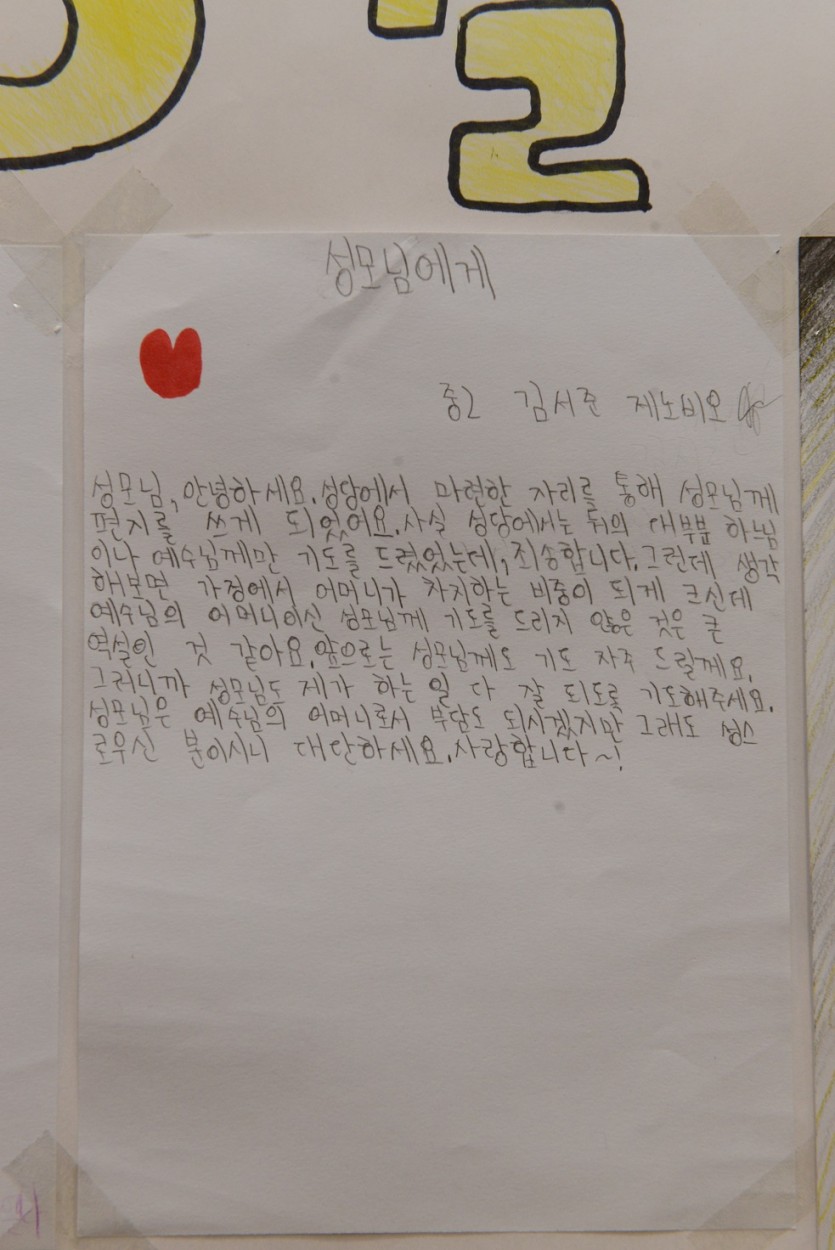 2
성모님에게
중2 김서준 제노비오
성모님, 안녕하세요. 성당에서 마련한 자리를 통해 성모님께
편지를 쓰게 되었어요. 사실 성당에서는 거의 대부분 하느님
이나 예수님께만 기도를 드렸었는데, 죄송합니다. 그런데 생각
해보면 가정에서 어머니가 차지하는 비중이 되게 크신데
예수님의 어머니이신 성모님께 기도를 드리지 않은 것은 큰
역설인 것 같아요. 앞으로는 성모님께도 기도 자주 드릴께요.
그러니까 성모님도 제가 하는 일 다 잘 되도록 기도해주세요.
성모님은 예수님의 어머니로서 부담도 되시겠지만 그래도 성스
로우신 분이시니 대단하세요. 사랑합니다~!